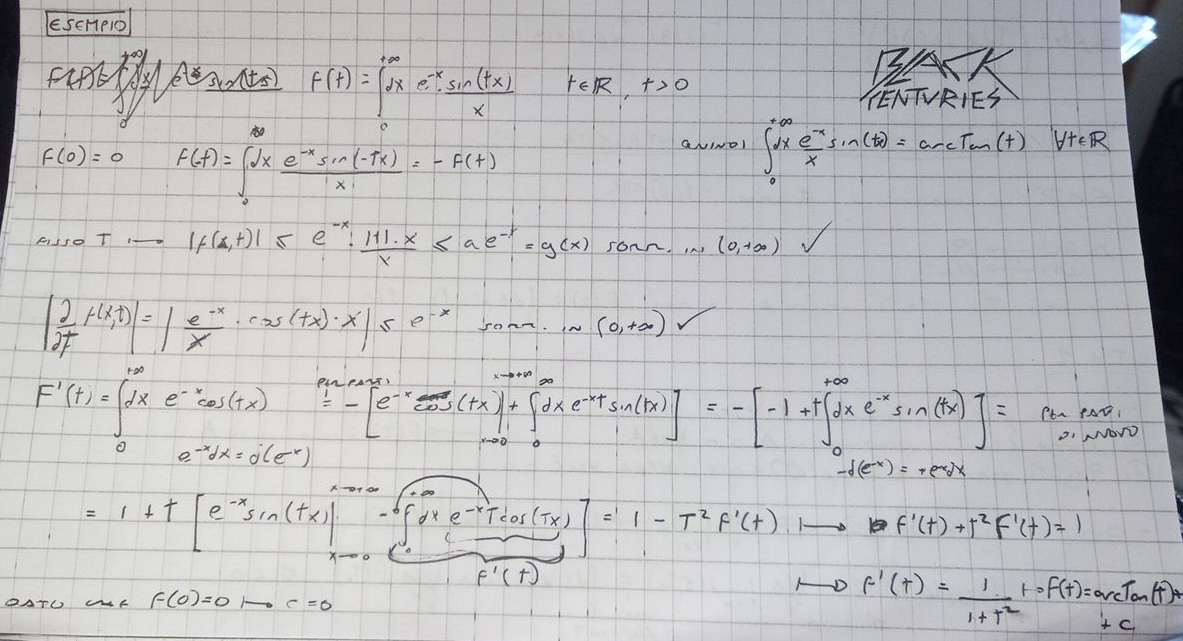 ESEMPIO
F(t) = ∫₀^{+∞} dx e^{-x} · sin(tx)/x t∈ℝ, t>0
BLACK
CENTURIES
F(0) = 0 F(-t) = ∫₀^{+∞} dx e^{-x} sin(-tx)/x = - F(t)
QUINDI ∫₀^{+∞} dx e^{-x}/x sin(tx) = arcTan(t) ∀t∈ℝ
FISSO T ⟼ |f(x,t)| ≤ e^{-x} · |t|·x/x ≤ a e^{-x} = g(x) somm. in (0,+∞) ✓
|∂/∂t f(x,t)| = |e^{-x}/x · cos(tx)·x| ≤ e^{-x} somm. in (0,+∞) ✓
F'(t) = ∫₀^{+∞} dx e^{-x} cos(tx) = PER PARTI - [e^{-x} cos(tx)|_{x→0}^{x→+∞} + ∫₀^{∞} dx e^{-x} t sin(tx)] = - [-1 + t ∫₀^{+∞} dx e^{-x} sin(tx)] = PER PARTI DI NUOVO
e^{-x}dx = d(e^{-x})
-d(e^{-x}) = +e^{-x}dx
= 1 + t [e^{-x} sin(tx)|_{x→0}^{x→+∞} - ∫₀^{+∞} dx e^{-x} T cos(Tx)] = 1 - T² F'(t) ⟼ F'(t) + t² F'(t) = 1
F'(t)
⟼ F'(t) = 1/(1+t²) ⟼ F(t) = arcTan(t) + + C
DATO CHE F(0)=0 ⟼ C=0